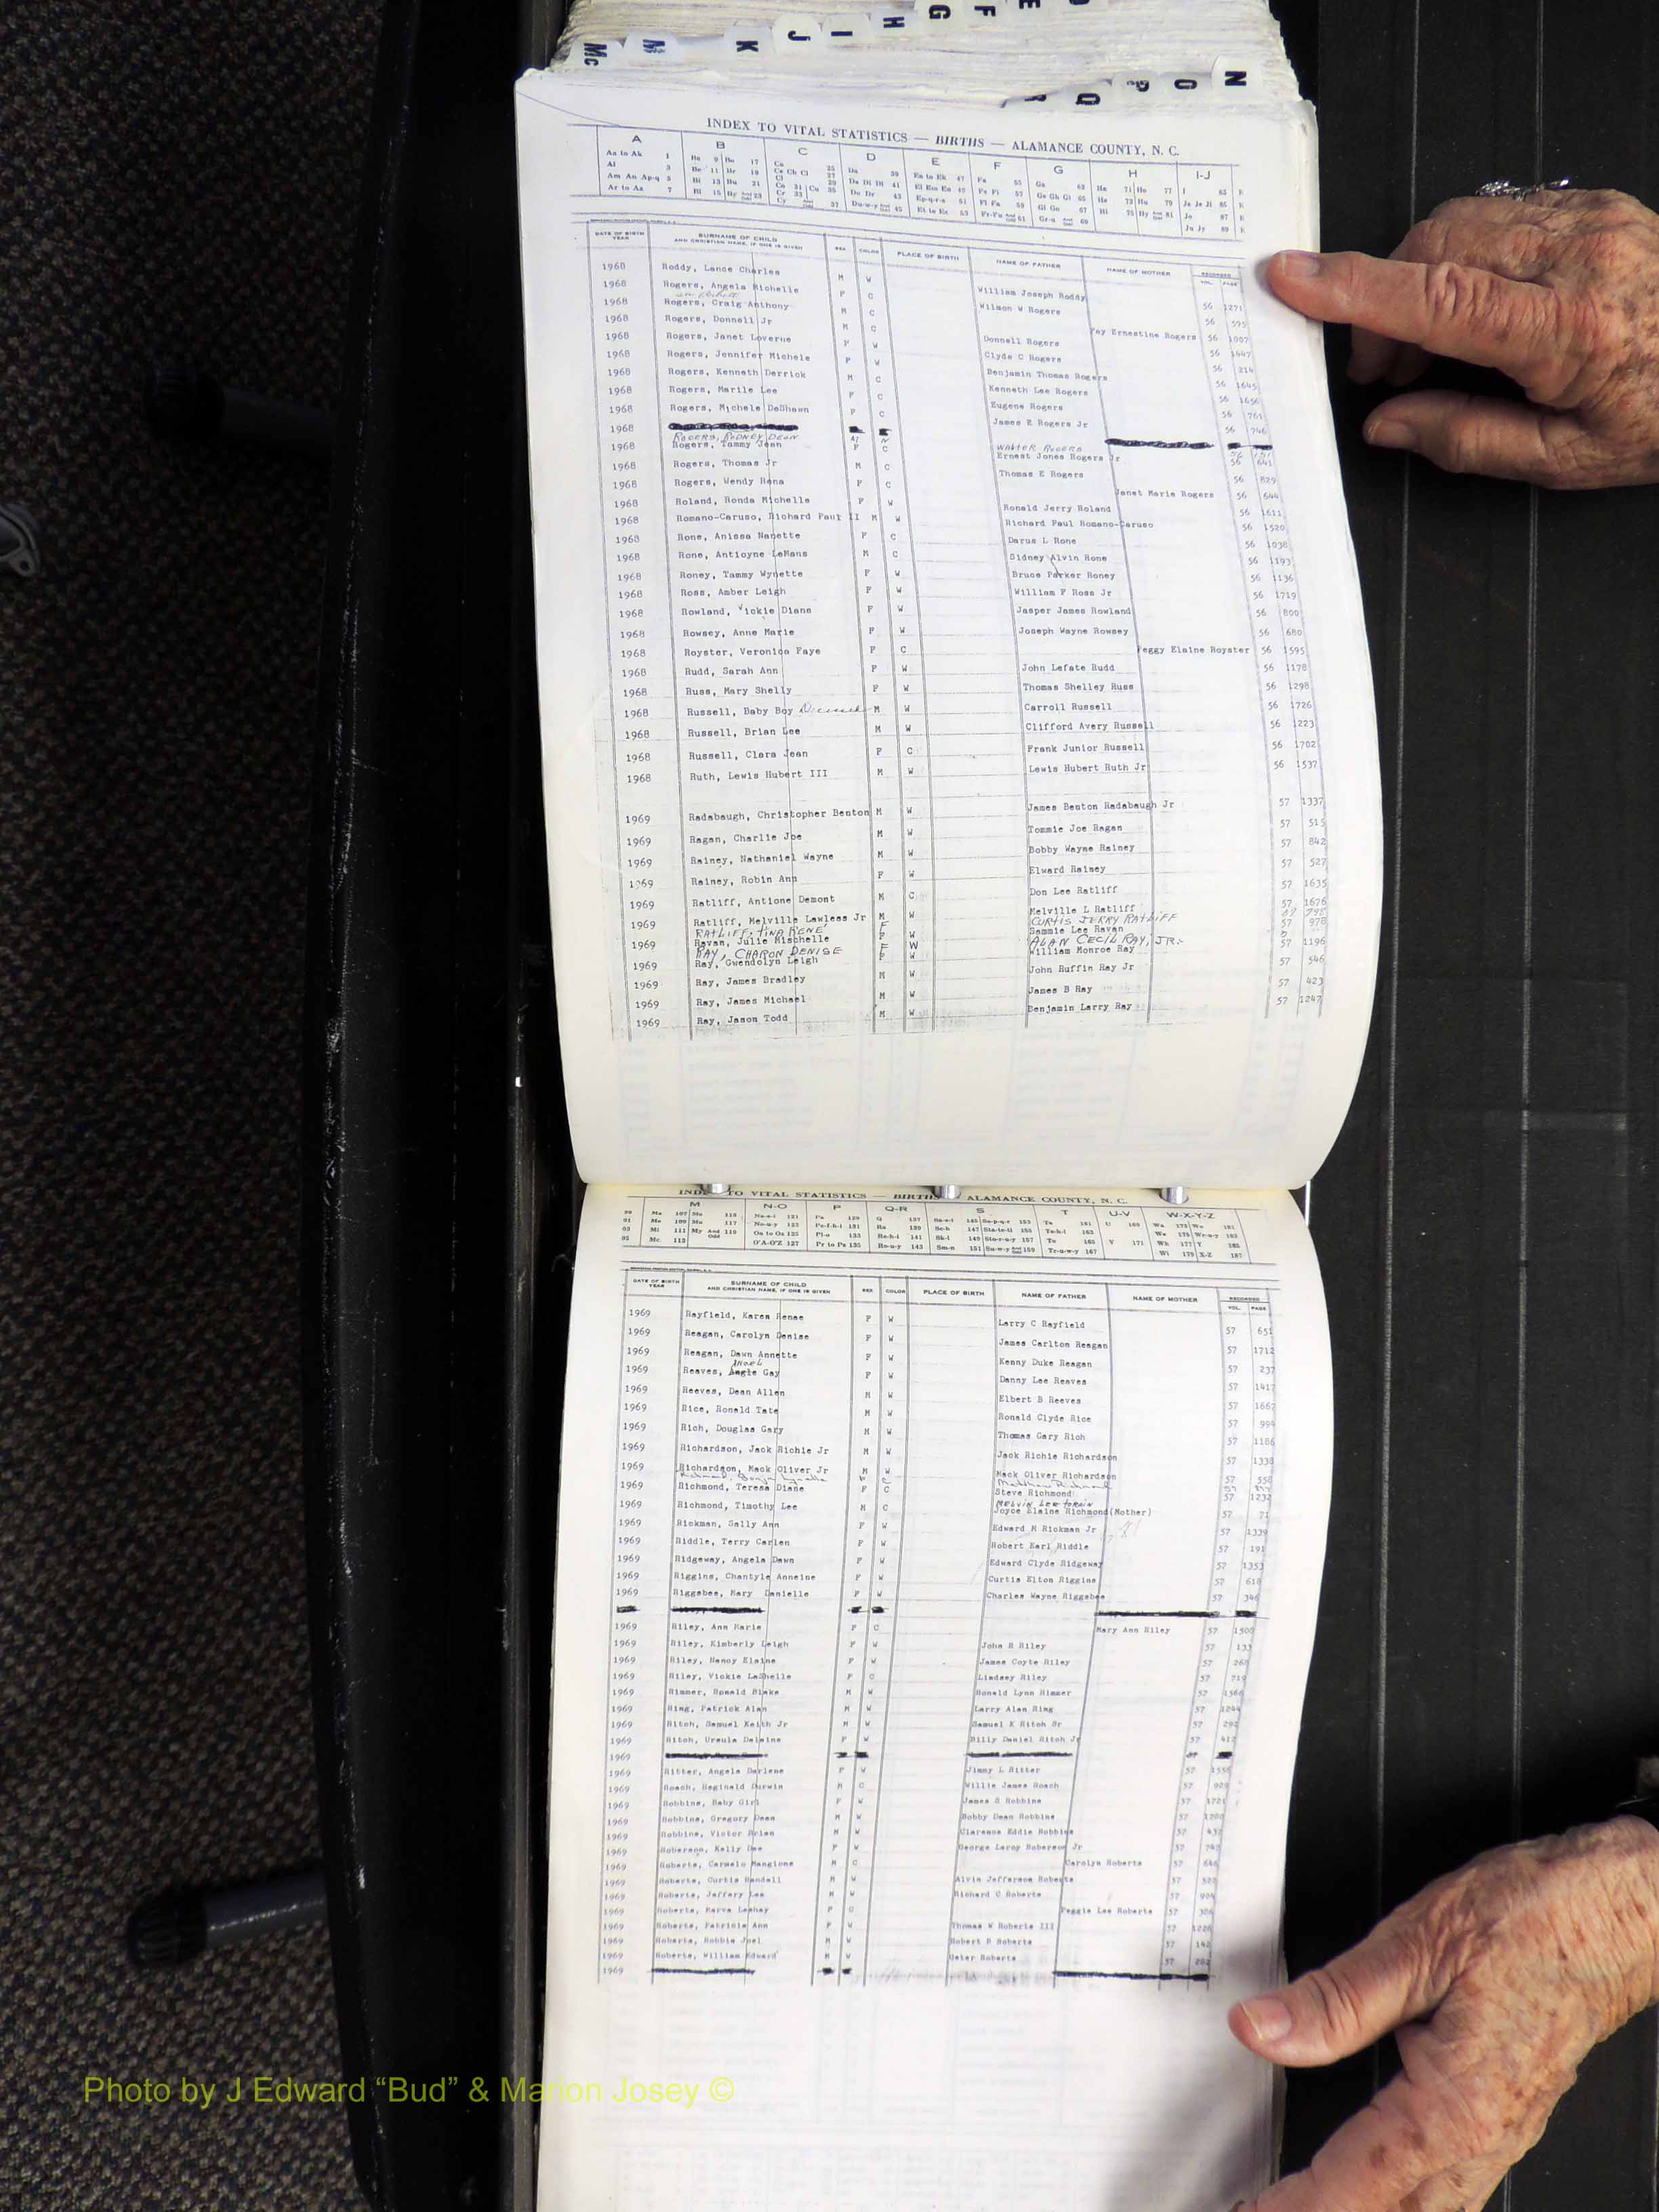 Mc M K J I H G F E D
R Q P O N
INDEX TO VITAL STATISTICS — BIRTHS — ALAMANCE COUNTY, N. C.
A B C D E F G H I-J
DATE OF BIRTH YEAR SURNAME OF CHILD AND CHRISTIAN NAME, IF ONE IS GIVEN SEX COLOR PLACE OF BIRTH NAME OF FATHER NAME OF MOTHER RECORDED VOL. PAGE
1968 Roddy, Lance Charles M W William Joseph Roddy 56 1271
1968 Rogers, Angela Michelle F C Wilson W Rogers 56 595
1968 Rogers, Craig Anthony M C Fay Ernestine Rogers 56 1007
1968 Rogers, Donnell Jr M C Donnell Rogers 56 1447
1968 Rogers, Janet Loverne F W Clyde C Rogers 56 214
1968 Rogers, Jennifer Michele F W Benjamin Thomas Rogers 56 1645
1968 Rogers, Kenneth Derrick M C Kenneth Lee Rogers 56 1656
1968 Rogers, Marile Lee F C Eugene Rogers 56 761
1968 Rogers, Michele DeShawn F C James E Rogers Jr 56 746
1968
ROGERS, RODNEY DEON M N WALTER ROGERS
1968 Rogers, Tammy Jean F C Ernest Jones Rogers Jr 56 641
1968 Rogers, Thomas Jr M C Thomas E Rogers 56 829
1968 Rogers, Wendy Rena F C Janet Marie Rogers 56 644
1968 Roland, Ronda Michelle F W Ronald Jerry Roland 56 1611
1968 Romano-Caruso, Richard Paul II M W Richard Paul Romano-Caruso 56 1520
1968 Rone, Anissa Nanette F C Darus L Rone 56 1038
1968 Rone, Antioyne LeMans M C Sidney Alvin Rone 56 1193
1968 Roney, Tammy Wynette F W Bruce Parker Roney 56 1136
1968 Ross, Amber Leigh F W William F Ross Jr 56 1719
1968 Rowland, Vickie Diane F W Jasper James Rowland 56 800
1968 Rowsey, Anne Marie F W Joseph Wayne Rowsey 56 680
1968 Royster, Veronica Faye F C Peggy Elaine Royster 56 1595
1968 Rudd, Sarah Ann F W John Lefate Rudd 56 1178
1968 Russ, Mary Shelly F W Thomas Shelley Russ 56 1298
1968 Russell, Baby Boy Deceased M W Carroll Russell 56 1726
1968 Russell, Brian Lee M W Clifford Avery Russell 56 1223
1968 Russell, Clara Jean F C Frank Junior Russell 56 1702
1968 Ruth, Lewis Hubert III M W Lewis Hubert Ruth Jr 56 1537
1969 Radabaugh, Christopher Benton M W James Benton Radabaugh Jr 57 1337
1969 Ragan, Charlie Joe M W Tommie Joe Ragan 57 515
1969 Rainey, Nathaniel Wayne M W Bobby Wayne Rainey 57 842
1969 Rainey, Robin Ann F W Elward Rainey 57 527
1969 Ratliff, Antione Demont M C Don Lee Ratliff 57 1635
1969 Ratliff, Melville Lawless Jr M W Melville L Ratliff 57 1676
RATLIFF, TINA RENE F CURTIS JERRY RATLIFF
1969 Ravan, Julie Mischelle F W Sammie Lee Ravan 57 978
RAY, CHARON DENISE F W ALAN CECIL RAY, JR.
1969 Ray, Gwendolyn Leigh F W William Monroe Ray 57 1196
1969 Ray, James Bradley M W John Ruffin Ray Jr 57 546
1969 Ray, James Michael M W James B Ray 57 423
1969 Ray, Jason Todd M W Benjamin Larry Ray 57 1247
INDEX TO VITAL STATISTICS — BIRTHS ALAMANCE COUNTY, N. C.
M N-O P Q-R S T U-V W-X-Y-Z
DATE OF BIRTH YEAR SURNAME OF CHILD AND CHRISTIAN NAME, IF ONE IS GIVEN SEX COLOR PLACE OF BIRTH NAME OF FATHER NAME OF MOTHER RECORDED VOL. PAGE
1969 Rayfield, Karen Renae F W Larry C Rayfield 57 651
1969 Reagan, Carolyn Denise F W James Carlton Reagan 57 1712
1969 Reagan, Dawn Annette F W Kenny Duke Reagan 57 237
1969 Reaves, Angie Gay F W Danny Lee Reaves 57 1417
1969 Reeves, Dean Allen M W Elbert B Reeves 57 1667
1969 Rice, Ronald Tate M W Ronald Clyde Rice 57 994
1969 Rich, Douglas Gary M W Thomas Gary Rich 57 1186
1969 Richardson, Jack Richie Jr M W Jack Richie Richardson 57 1330
1969 Richardson, Mack Oliver Jr M W Mack Oliver Richardson 57 558
1969 Richmond, Teresa Diane F C Steve Richmond 57 1232
MELVIN LEE TORAIN
1969 Richmond, Timothy Lee M C Joyce Elaine Richmond(Mother) 57 71
1969 Rickman, Sally Ann F W Edward M Rickman Jr 57 1339
1969 Riddle, Terry Carlen F W Robert Earl Riddle 57 191
1969 Ridgeway, Angela Dawn F W Edward Clyde Ridgeway 57 1353
1969 Riggins, Chantyle Anneine F W Curtis Elton Riggins 57 618
1969 Riggsbee, Mary Danielle F W Charles Wayne Riggsbee 57 346
1969 Riley, Ann Marie F C Mary Ann Riley 57 1500
1969 Riley, Kimberly Leigh F W John R Riley 57 133
1969 Riley, Nancy Elaine F W James Coyte Riley 57 268
1969 Riley, Vickie LaShelle F C Lindsey Riley 57 719
1969 Rimmer, Ronald Blake M W Ronald Lynn Rimmer 57 1566
1969 Ring, Patrick Alan M W Larry Alan Ring 57 1244
1969 Ritch, Samuel Keith Jr M W Samuel K Ritch Sr 57 292
1969 Ritch, Ursula Delaine F W Billy Daniel Ritch Jr 57 412
1969
1969 Ritter, Angela Darlene F W Jimmy L Ritter 57 1556
1969 Roach, Reginald Durwin M C Willie James Roach 57 909
1969 Robbins, Baby Girl F W James S Robbins 57 1721
1969 Robbins, Gregory Dean M W Bobby Dean Robbins 57 1200
1969 Robbins, Victor Brian M W Clarence Eddie Robbins 57 437
1969 Roberson, Kelly Dee F W George Leroy Roberson Jr 57 740
1969 Roberts, Carmelo Mangione M C Carolyn Roberts 57 646
1969 Roberts, Curtis Randall M W Alvin Jefferson Roberts 57 520
1969 Roberts, Jeffery Lee M W Richard C Roberts 57 904
1969 Roberts, Karva Leshay F C Peggie Lee Roberts 57 306
1969 Roberts, Patricia Ann F W Thomas W Roberts III 57 1226
1969 Roberts, Robbie Joel M W Robert R Roberts 57 142
1969 Roberts, William Edward M W Roberts 57 202
1969
Photo by J Edward “Bud” & Marion Josey ©